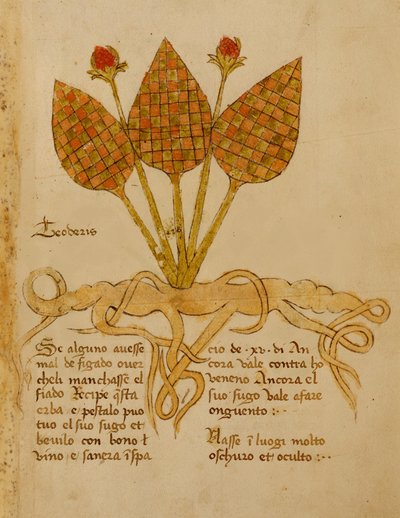 Leoderis
Se alguno auesse
mal de figado ouer
cheli manchasse el
fiado Recipe q̃sta
erba e pestalo puo
tuo el suo sugo et
beuilo con bono
vino e sanera ĩ spa
cio de .xv. di An
cora vale contra ho
veneno Ancora el
suo sugo vale afare
onguento :~
Nasse ĩ luogi molto
oschuro et oculto :~